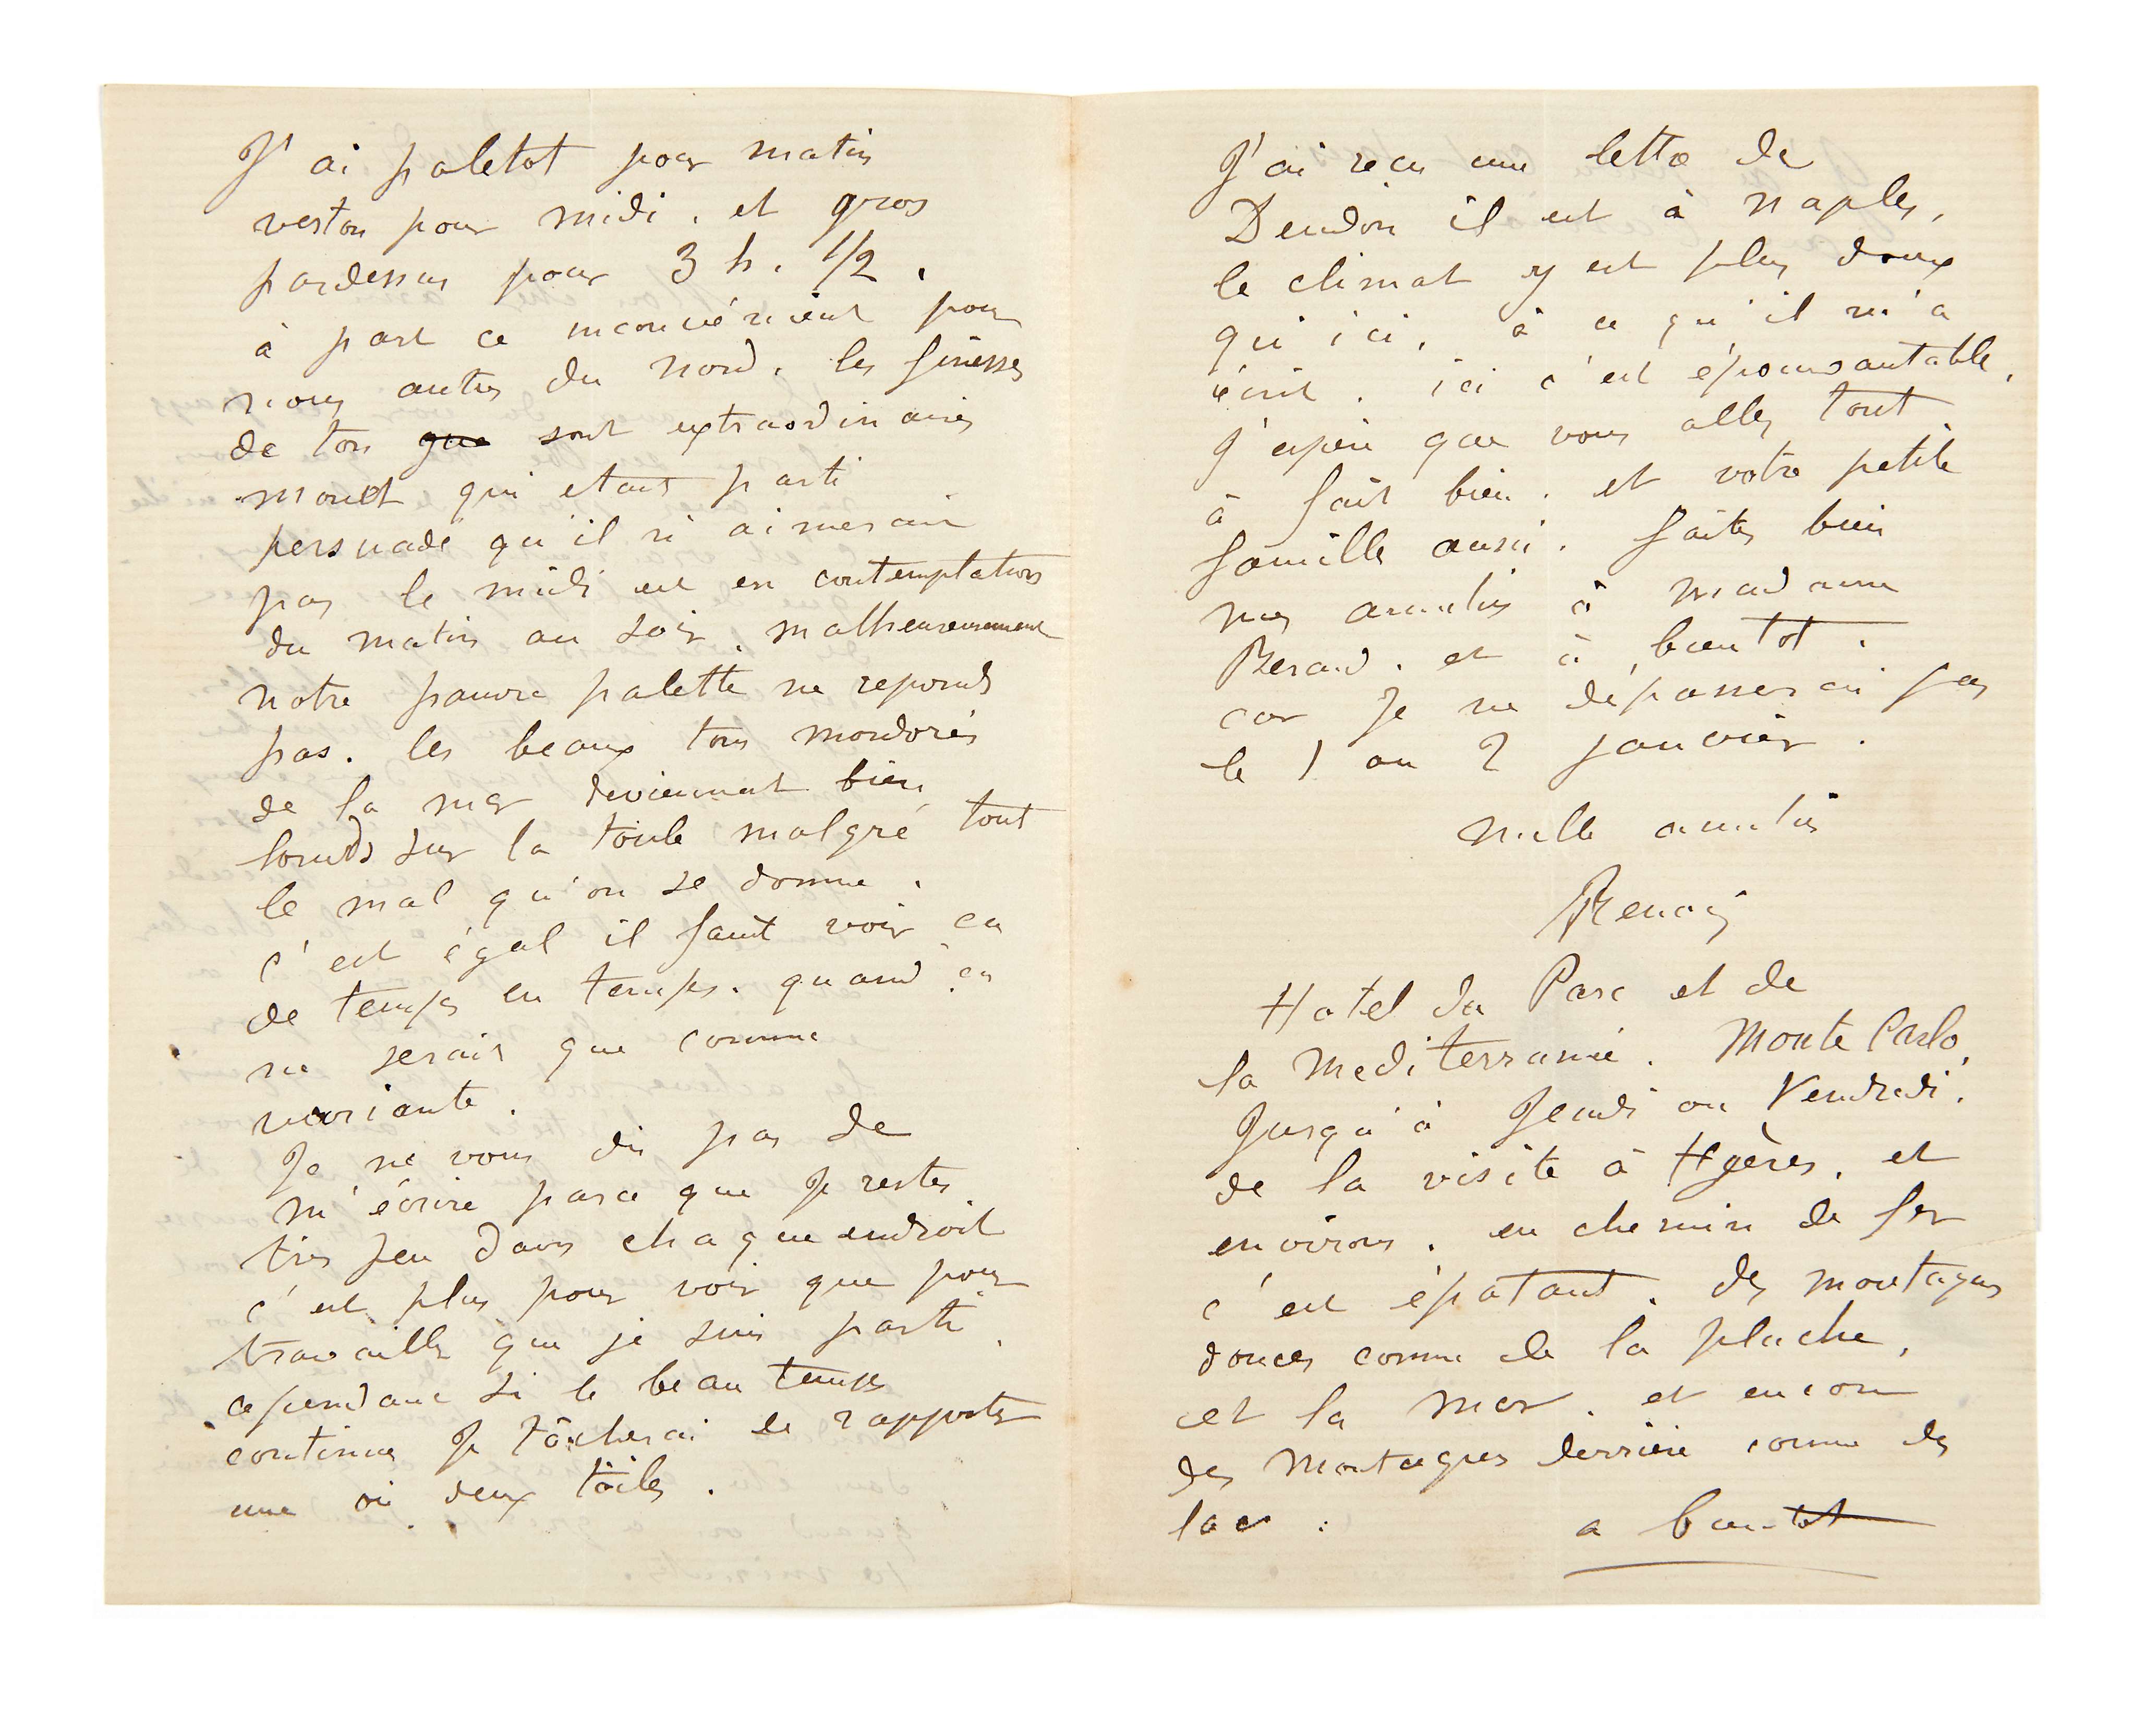 J'ai paletot pour matin
veston pour midi. et gros
pardessus pour 3 h. 1/2.
à part ce inconvénient pour
nous autres du nord. les finesses
de ton que sont extraordinaires
monet qui etait parti
persuadé qu'il n'aimerait
pas le midi est en contemplation
du matin au soir. malheureusement
notre pauvre palette ne reponds
pas. les beaux tons mordorés
de la mer deviennent bien
lourds sur la toile malgré tout
le mal qu'on se donne.
c'est égal il faut voir ca
de temps en temps. quand ca
ne serait que comme
variante.
Je ne vous dis pas de
m'écrire parce que je restes
tres peu dans chaque endroit
c'est plus pour voir que pour
travailler que je suis parti.
cependant si le beau temps
continue je tâcherai de rapporter
une ou deux toiles.
J'ai recu une lettre de
Deudon il est à naples,
le climat y est plus doux
qu'ici, à ce qu'il m'a
écrit. ici c'est épouvantable.
J'espère que vous allez tout
à fait bien. et votre petite
famille aussi. faites bien
mes amitiés à madame
Berard. et à bientot.
car je ne dépasserai pas
le 1 ou 2 janvier.
mille amitiés
Renoir
Hotel du Parc et de
la Mediterranée. Monte Carlo.
Jusqu'à Jeudi ou Vendredi.
de la visite à Hyères. et
environs. en chemin de fer
c'est épatant. des montagnes
douces comme de la pluche,
et la mer. et encore
des montagnes derrière comme des
lacs.
a bientot